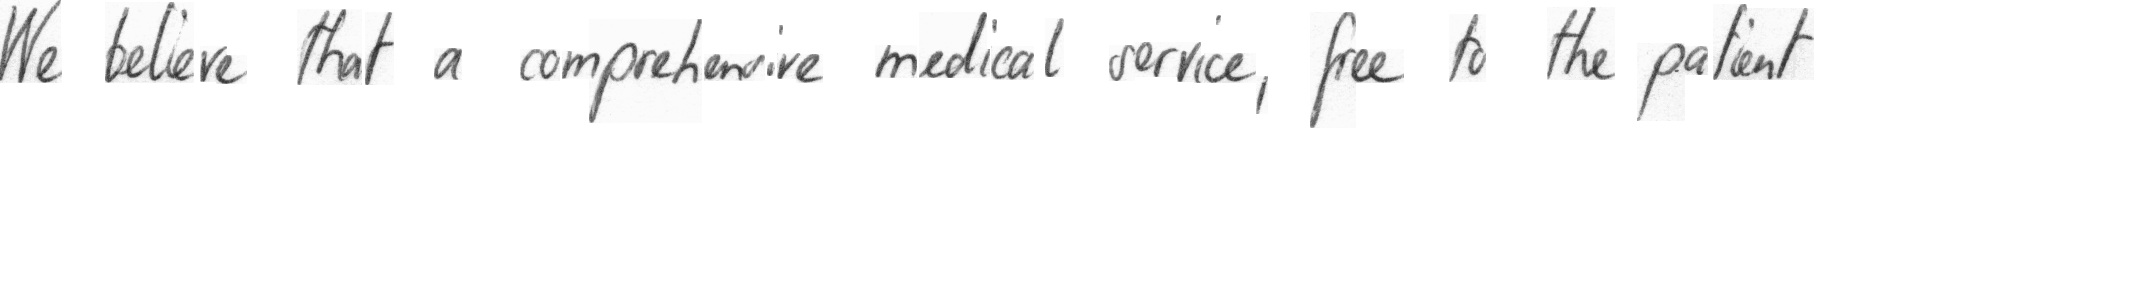 We believe that a comprehensive medical service, free to the patient